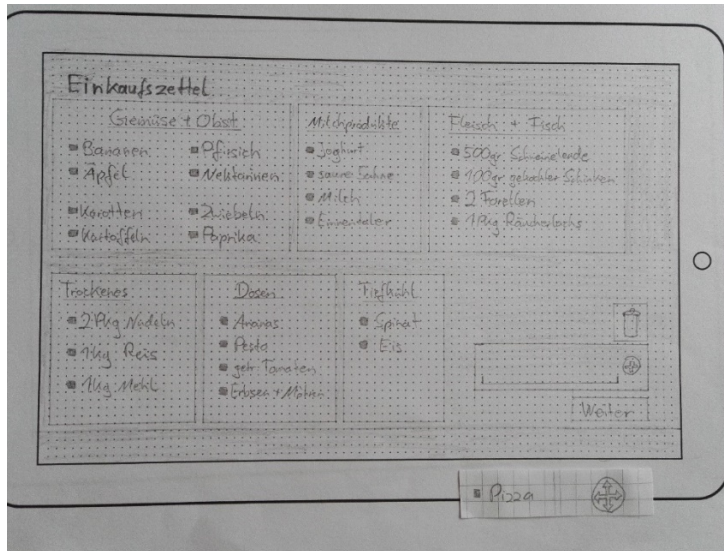 Einkaufszettel
Gemüse + Obst
Bananen
Pfirsich
Äpfel
Nektarinen
Karotten
Zwiebeln
Kartoffeln
Paprika
Milchprodukte
Joghurt
saure Sahne
Milch
Emmentaler
Fleisch + Fisch
500gr Schweinelende
100gr gekochter Schinken
2 Forellen
1 Pkg Räucherlachs
Trockenes
2 Pkg Nudeln
1kg Reis
1kg Mehl
Dosen
Ananas
Pesto
geh. Tomaten
Erbsen + Möhren
Tiefkühl
Spinat
Eis
Weiter
Pizza